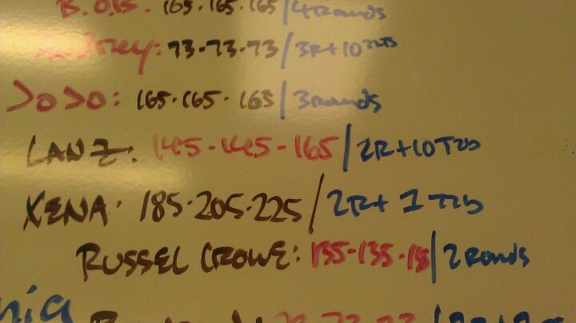 B.O.B. 165.165.165/4Rounds
73-73-73/3R+10TTB
JoJo: 165.165.165/3rounds
LANZ: 145-145-165/2R+10TTB
XENA. 185.205.225/2R+1TTB
RUSSEL CROWE: 135-135-135/2Rounds
nia